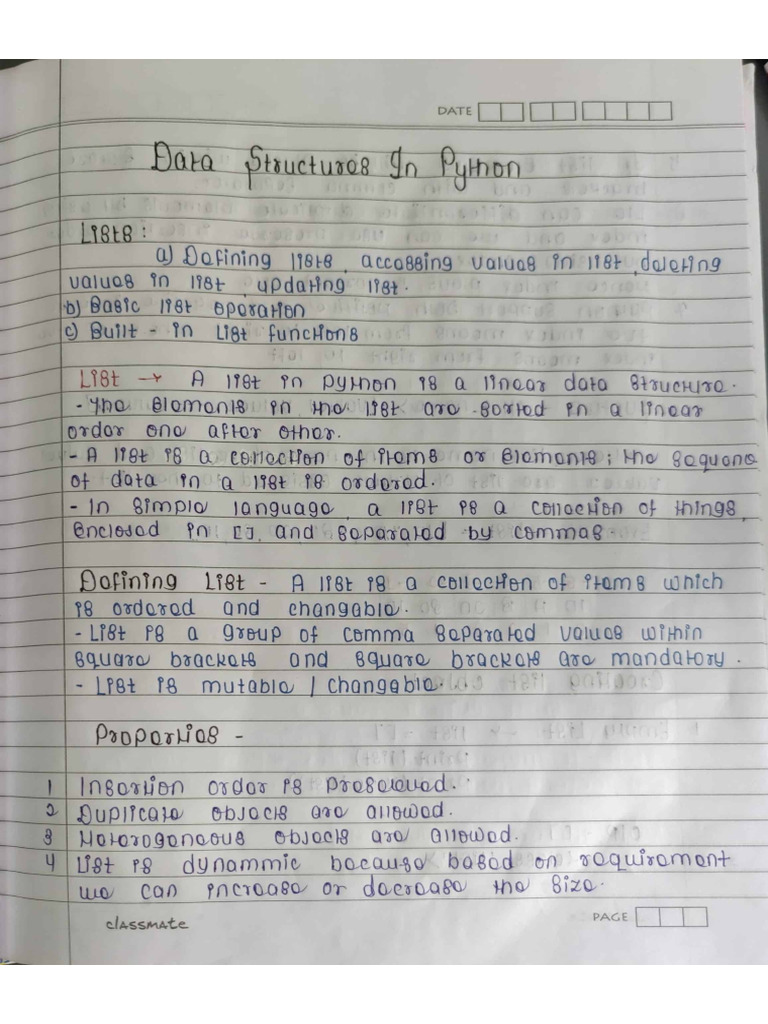 DATE
Data Structures In Python
Lists :
a) Defining lists, accessing values in list, deleting
values in list, updating list.
b) Basic list operation
c) Built - in List functions
List → A list in python is a linear data structure.
- The elements in the list are sorted in a linear
order one after other.
- A list is a collection of items or elements; the sequence
of data in a list is ordered.
- In simple language, a list is a collection of things,
enclosed in [], and separated by commas.
Defining List - A list is a collection of items which
is ordered and changable.
- List is a group of comma separated values within
square brackets and square brackets are mandatory.
- List is mutable / changable.
Properties -
1 Insertion order is preserved.
2 Duplicate objects are allowed.
3 Heterogeneous objects are allowed.
4 List is dynammic because based on requirement
we can increase or decrease the size.
classmate
PAGE